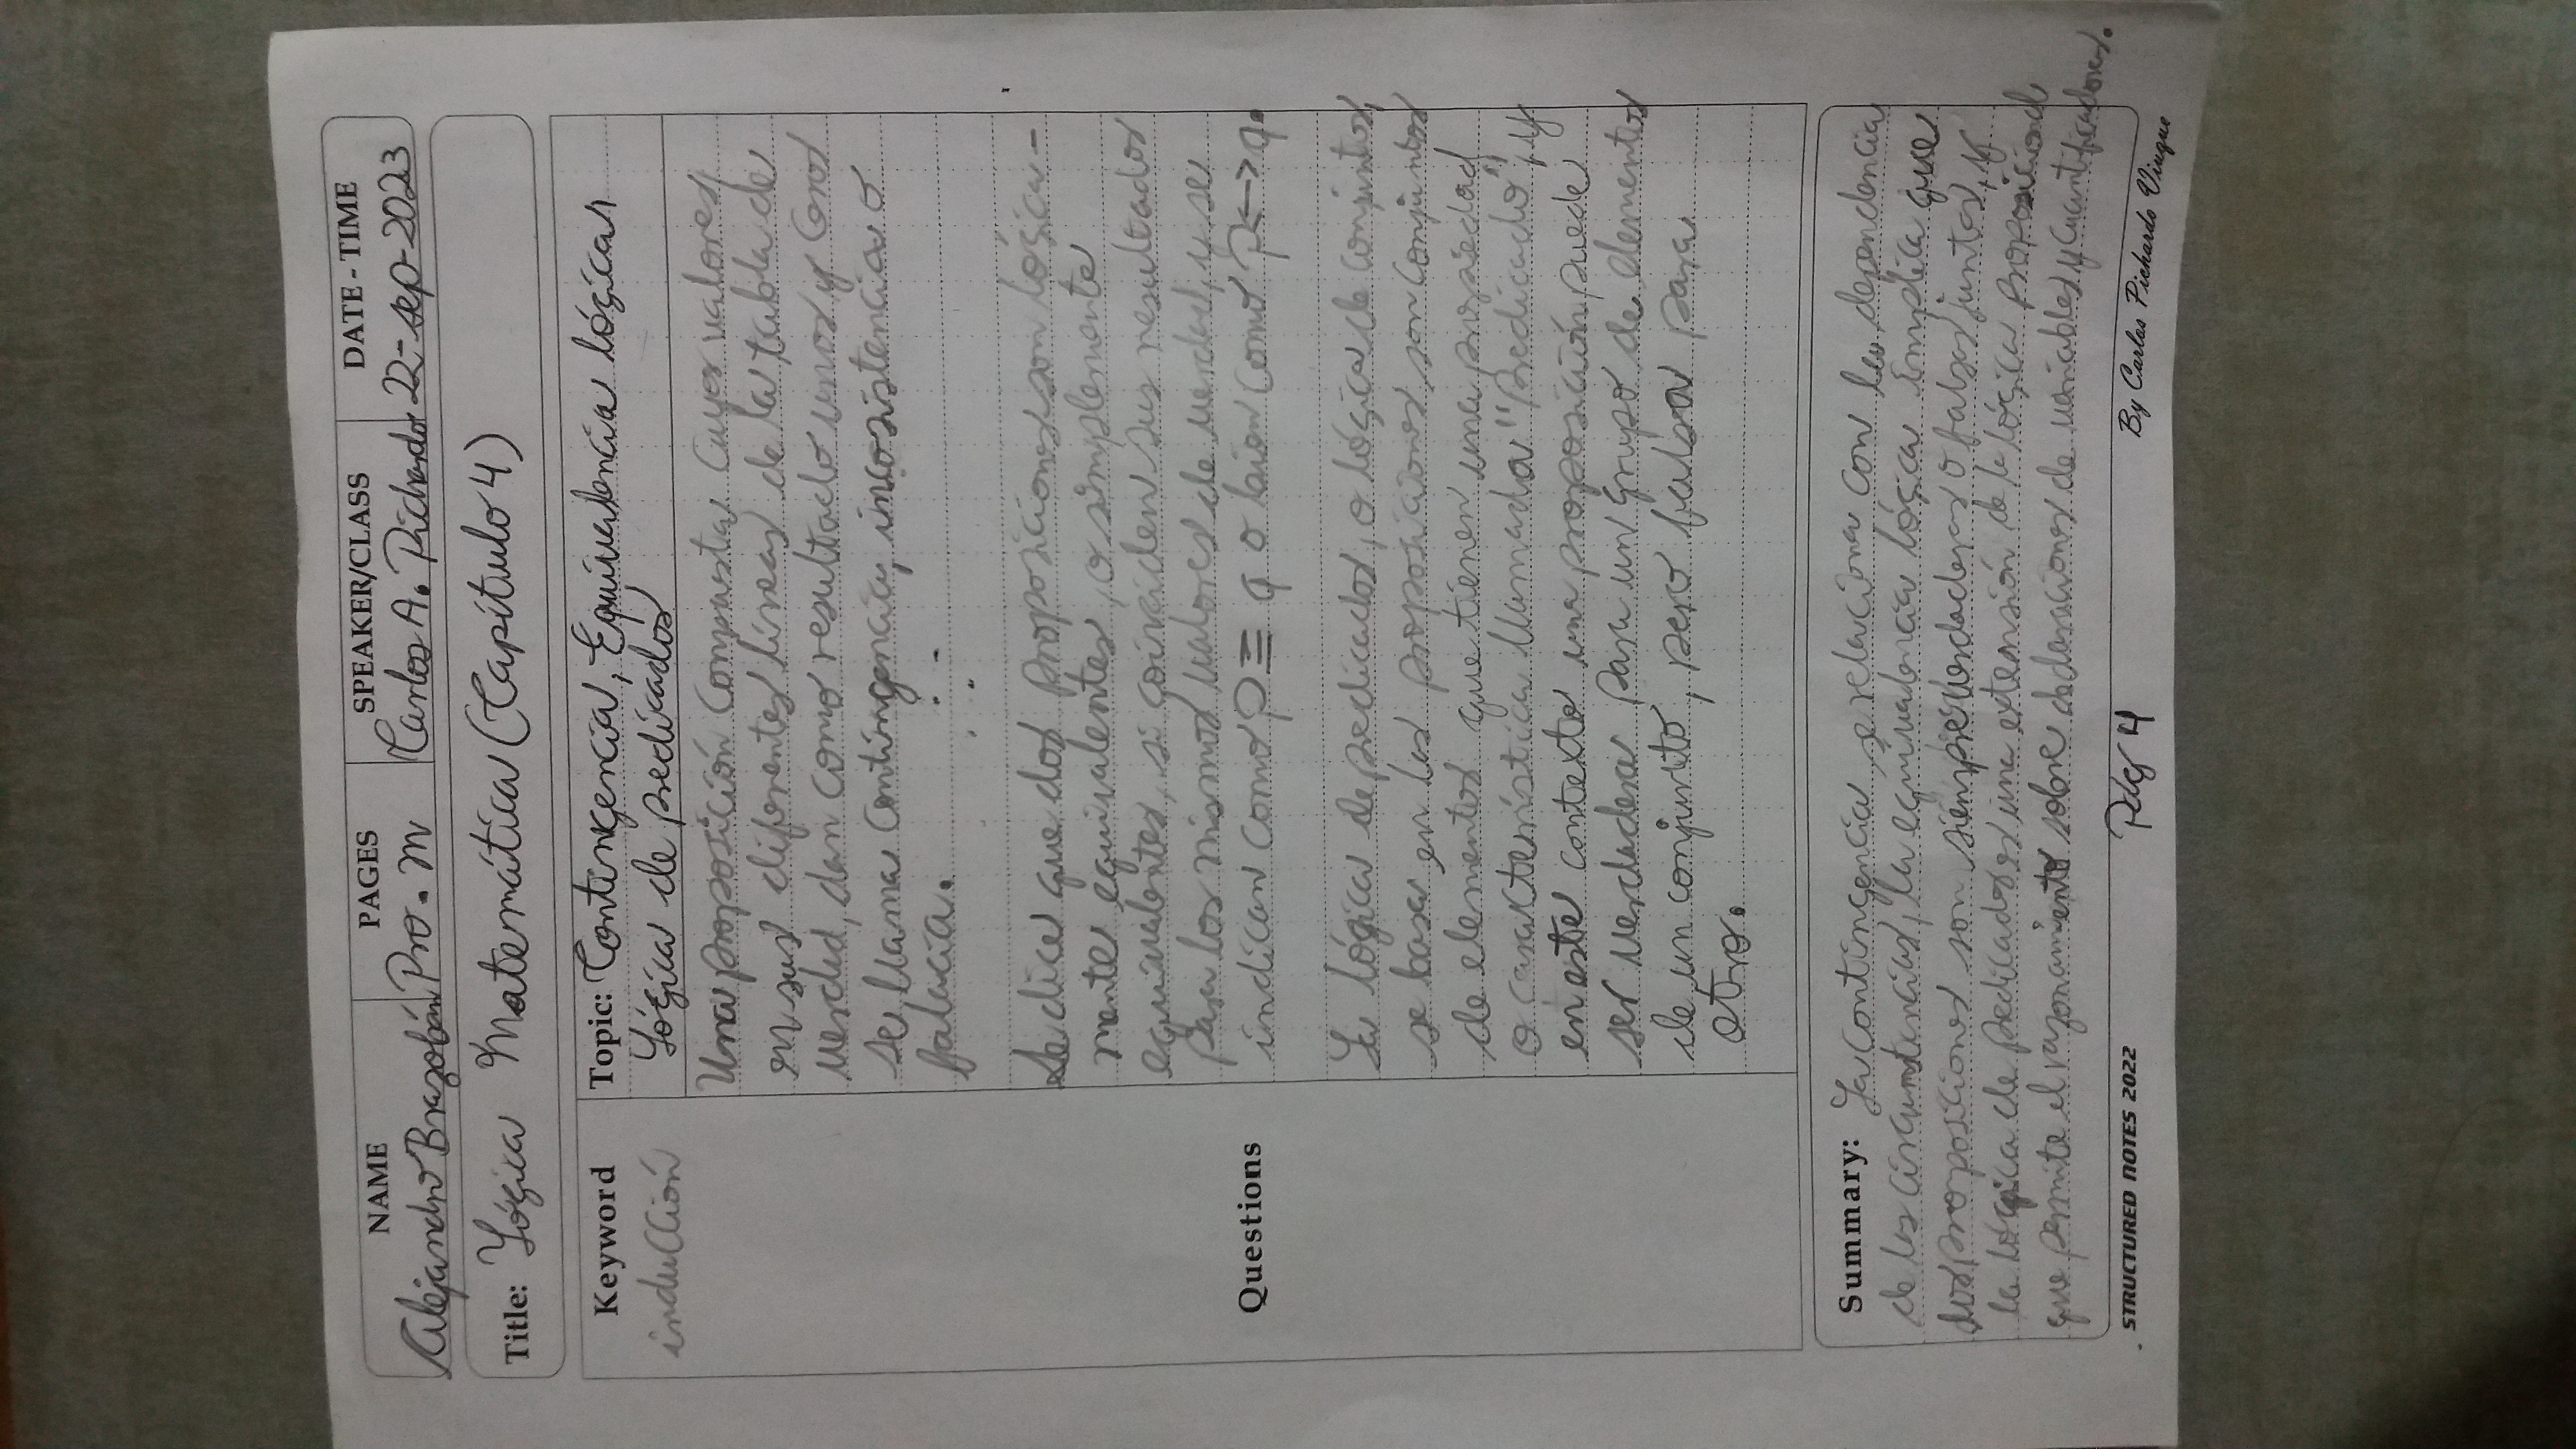 NAME PAGES SPEAKER/CLASS DATE - TIME
Alejandro Brazobán Pro. M Carlos A. Pichardo 22-sep-2023
Title: Lógica Matemática (Capítulo 4)
Keyword
inducción
Topic: Contingencia, Equivalencia lógica,
Lógica de predicados
Una proposición compuesta cuyos valores,
en sus diferentes líneas de la tabla de
verdad, dan como resultado unos y ceros
se llama contingencia, incosistencia o
falacia.
Se dice que dos proposiciones son lógica-
mente equivalentes, o simplemente
equivalentes, si coinciden sus resultados
para los mismos valores de verdad, y se
indican como p ≡ q o bien como p ↔ q.
Questions
La lógica de predicados, o lógica de conjuntos,
se basa en las proposiciones son conjuntos
de elementos que tienen una propiedad
o característica llamada "predicado", y
en este contexto una proposición puede
ser verdadera para un grupo de elementos
de un conjunto, pero falsa para
otro.
Summary: La contingencia se relaciona con la dependencia
de las circunstancias, la equivalencia lógica implica que
dos proposiciones son siempre verdaderas o falsas juntas, y
la lógica de predicados es una extensión de la lógica proposicional
que permite el razonamiento sobre declaraciones de variables y cuantificadores.
STRUCTURED NOTES 2022 Pág 4 By Carlos Pichardo Viuque